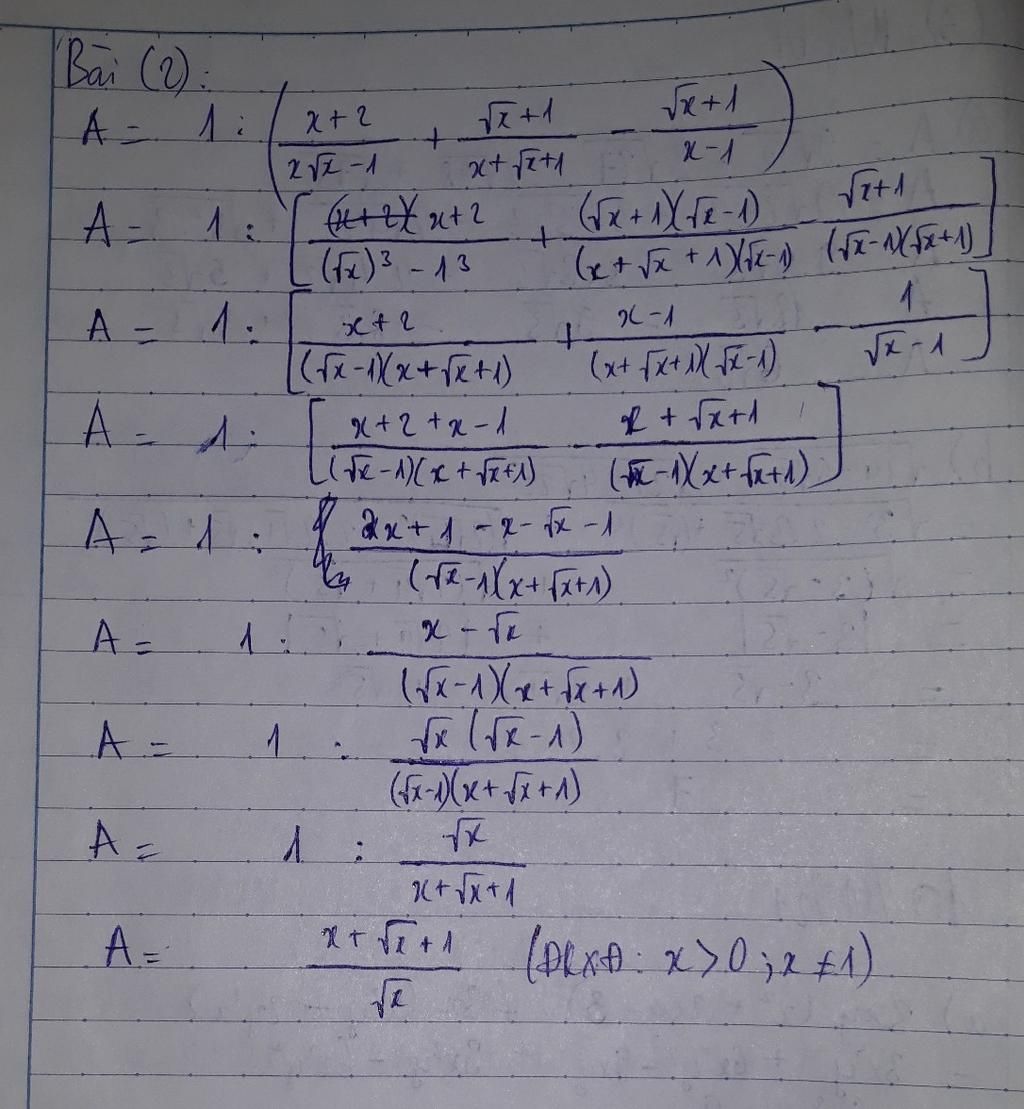 Bài (2):
A = 1 : ( (x+2)/(x√x -1) + (√x +1)/(x+√x+1) - (√x+1)/(x-1) )
A = 1 : [ (x+2)/((√x)³ - 1³) + ((√x+1)(√x-1))/((x+√x+1)(√x-1)) - (√x+1)/((√x-1)(√x+1)) ]
A = 1 : [ (x+2)/((√x-1)(x+√x+1)) + (x-1)/((x+√x+1)(√x-1)) - 1/(√x-1) ]
A = 1 : [ (x+2+x-1)/((√x-1)(x+√x+1)) - (x+√x+1)/((√x-1)(x+√x+1)) ]
A = 1 : (2x+1-x-√x-1)/((√x-1)(x+√x+1))
A = 1 : (x-√x)/((√x-1)(x+√x+1))
A = 1 : (√x(√x-1))/((√x-1)(x+√x+1))
A = 1 : √x/(x+√x+1)
A = (x+√x+1)/√x (ĐKXĐ: x>0; x≠1)